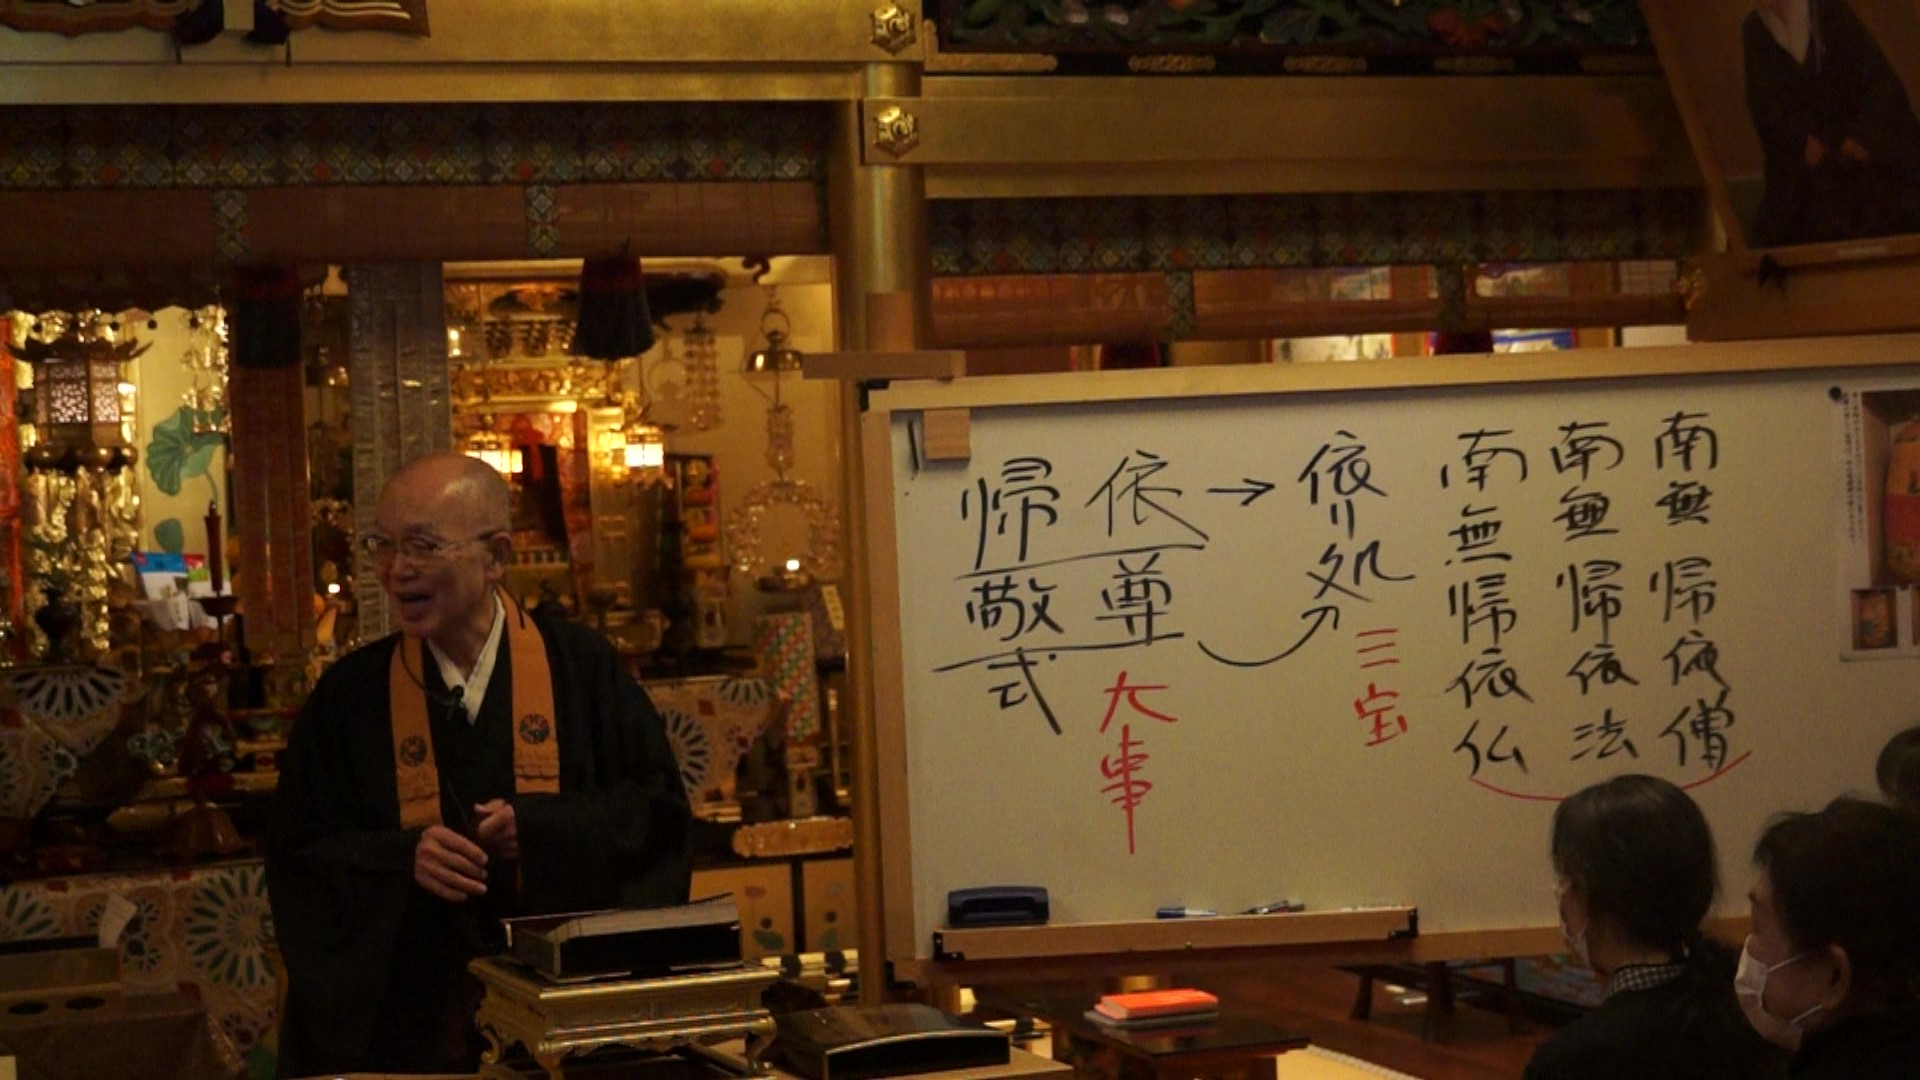 帰依→依
帰敬式
尊
〃
処
大事
三宝
南無帰依仏
南無帰依法
南無帰依僧